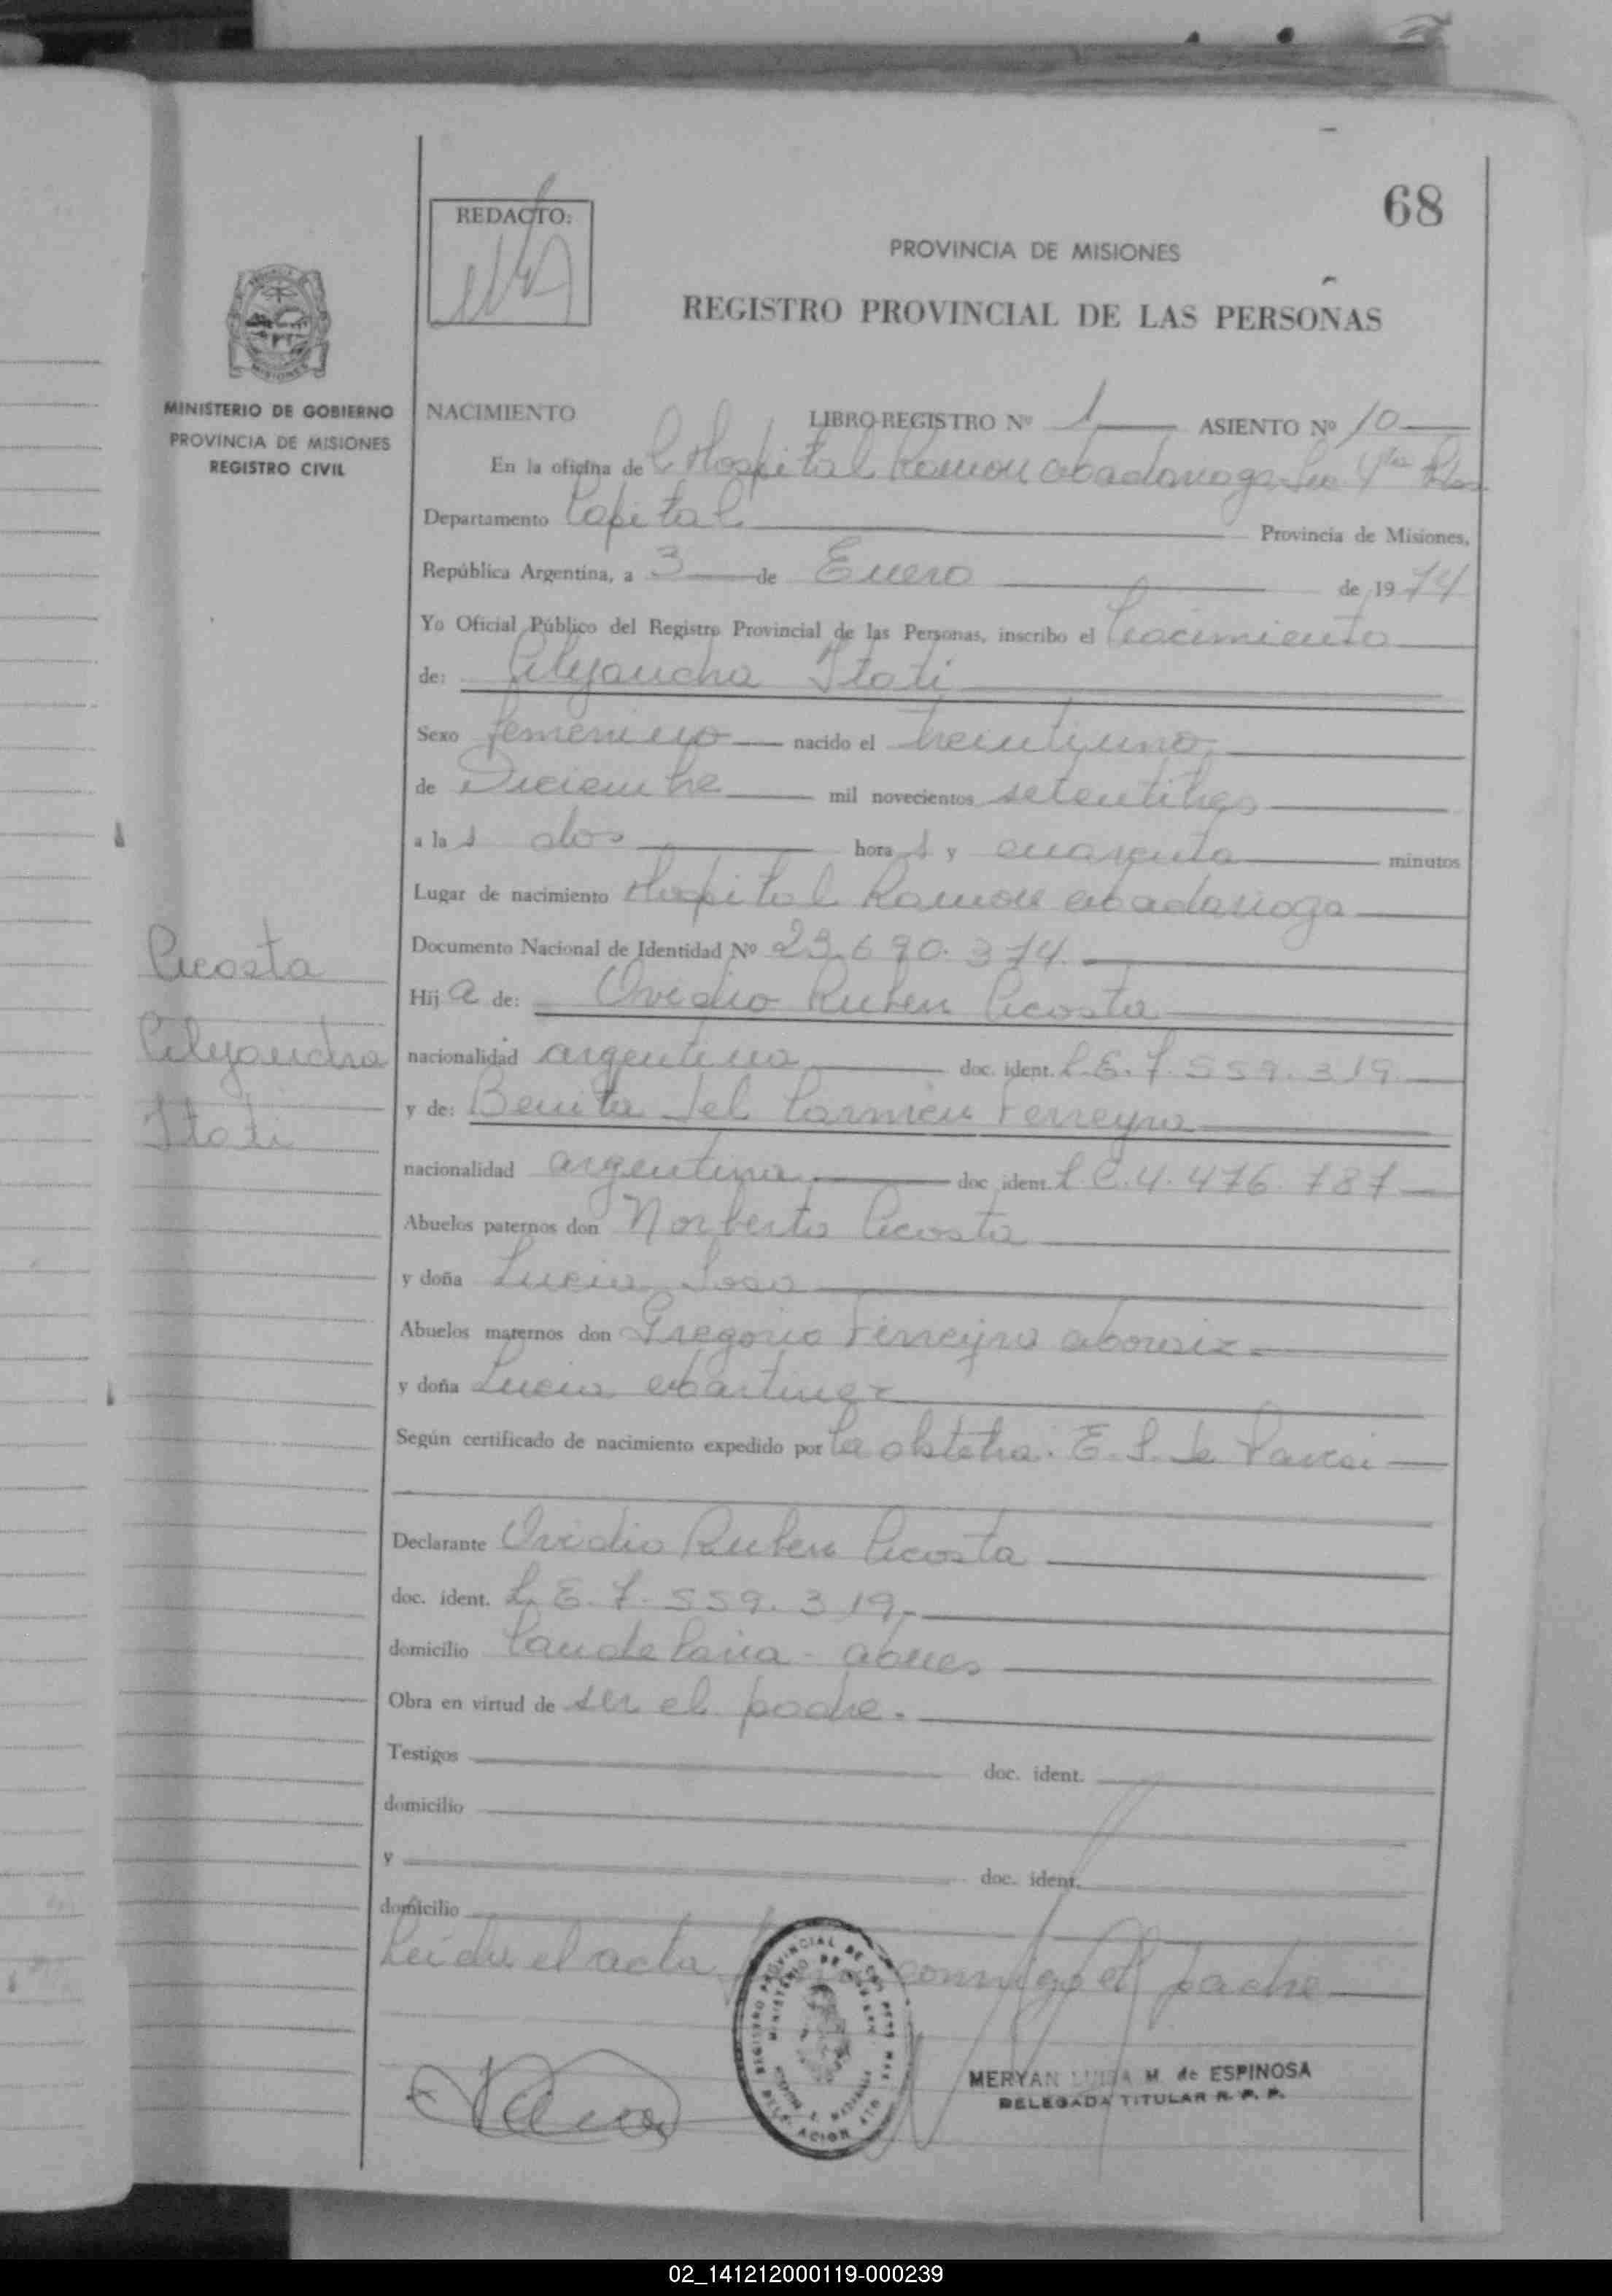 68
REDACTO:
PROVINCIA DE MISIONES
REGISTRO PROVINCIAL DE LAS PERSONAS
MISIONES
MINISTERIO DE GOBIERNO
PROVINCIA DE MISIONES
REGISTRO CIVIL
NACIMIENTO LIBRO-REGISTRO Nº 1 ASIENTO Nº 10
En la oficina de Hospital Ramon Madariaga
Departamento Capital Provincia de Misiones,
República Argentina, a 3 de Enero de 1974
Yo Oficial Público del Registro Provincial de las Personas, inscribo el Nacimiento
de: Alejandra Itati
Sexo femenino nacido el treintiuno
de Diciembre mil novecientos setentitres
a las dos horas y cuarenta minutos
Lugar de nacimiento Hospital Ramon Madariaga
Documento Nacional de Identidad Nº 23.690.374
Acosta
Alejandra
Itati
Hija de: Ovidio Ruben Acosta
nacionalidad argentina doc. ident. L.E. 7.559.319
y de: Benita del Carmen Ferreyra
nacionalidad argentina doc. ident. L.C. 4.476.787
Abuelos paternos don Norberto Acosta
y doña Lucia Sosa
Abuelos maternos don Gregorio Ferreyra
y doña Lucia Martinez
Según certificado de nacimiento expedido por la obstetra. E. S. de
Declarante Ovidio Ruben Acosta
doc. ident. L.E. 7.559.319.-
domicilio Candelaria - Mnes
Obra en virtud de ser el padre.
Testigos doc. ident.
domicilio
y doc. ident.
domicilio
Leída el acta conmigo el padre
REGISTRO PROVINCIAL DE LAS PERSONAS
MINISTERIO DE GOBIERNO
MERYAN LUISA M. de ESPINOSA
DELEGADA TITULAR R. P. P.
02_141212000119-000239